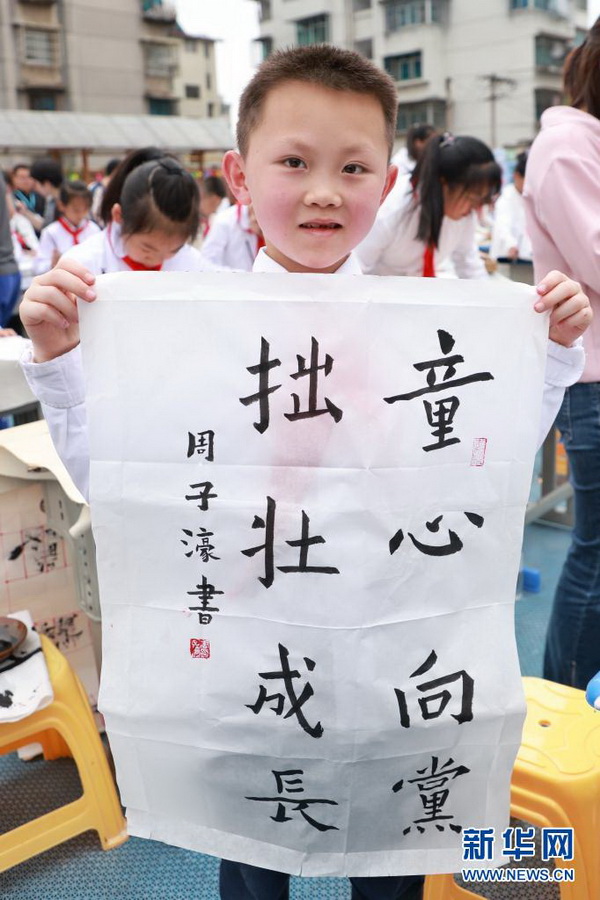 童心向黨
拙壮成長
周子濠書
新华网
WWW.NEWS.CN